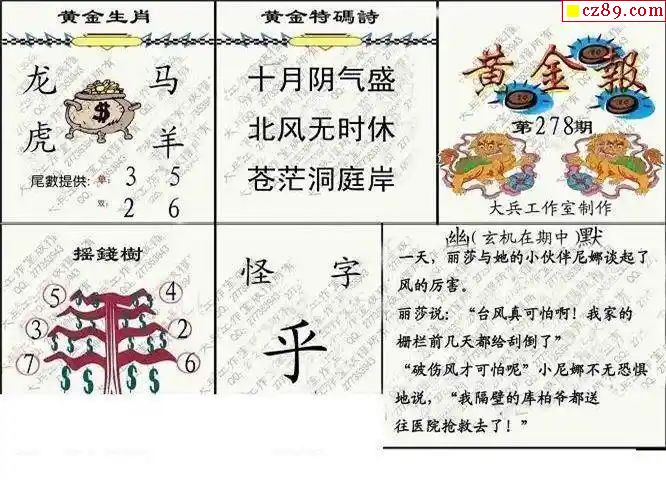 cz89.com
黄金生肖
龙 马
虎 羊
尾數提供: 单: 3 5
双: 2 6
黄金特碼詩
十月阴气盛
北风无时休
苍茫洞庭岸
黄金報
第278期
大兵工作室制作
摇錢樹
5 4
3 2
7 6
怪 字
乎
幽(玄机在期中)默
一天，丽莎与她的小伙伴尼娜谈起了
风的厉害。
丽莎说：“台风真可怕啊！我家的
栅栏前几天都给刮倒了”
“破伤风才可怕呢”小尼娜不无恐惧
地说，“我隔壁的库柏爷都送
往医院抢救去了！”